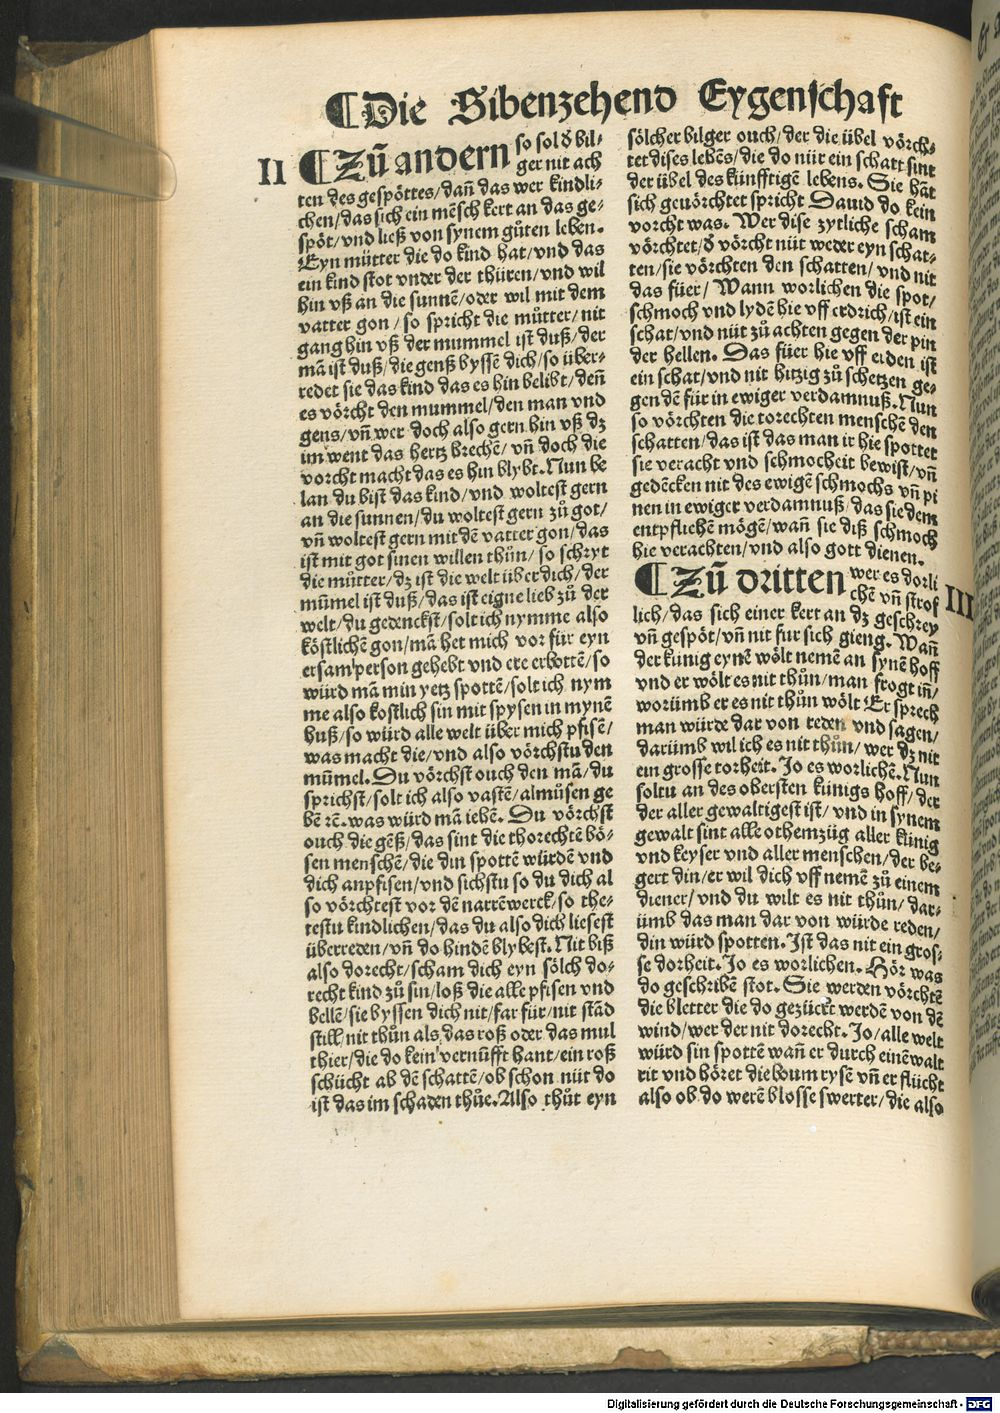 ¶Die Sibenzehend Eygenschaft
II
¶Zů andern so sol d̕ bil-
ger nit ach
ten des gespöttes/dañ das wer kindli-
chen/das sich ein mēsch kert an das ge-
spöt/vnd ließ von synem gůten leben.
Eyn můtter die do kind hat/vnd das
ein kind stot vnder der thüren/vnd wil
hin vß an die sunnē/oder wil mit dem
vatter gon/so spricht die můtter/nit
gang hin vß der mummel ist duß/der
mā ist duß/die genß byssē dich/so über-
redet sie das kind das es hin belibt/deñ
es vörcht den mummel/den man vnd
gens/vñ wer doch also gern hin vß dz
im went das hertz brechē/vñ doch die
vorcht macht das es hin blybt. Nun be
lan du bist das kind/vnd woltest gern
an die sunnen/du woltest gern zů got/
vñ woltest gern mit dē vatter gon/das
ist mit got sinen willen thůn/so schryt
die můtter/dz ist die welt über dich/der
mūmel ist duß/das ist eigne lieb zů der
welt/du gedenckst/solt ich nymme also
köstlichē gon/mā het mich vor für eyn
ersam person gehebt vnd ere erbottē/so
würd mā min yetz spottē/solt ich nym
me also kostlich sin mit spysen in mynē
huß/so würd alle welt über mich pfisē/
was macht die/vnd also vörchstu den
mūmel. Du vörchst ouch den mā/du
sprichst/solt ich also vastē/almůsen ge
bē ꝛē. was würd mā iehē. Du vörchst
ouch die gēß/das sint die thorechtē bö-
sen menschē/die din spottē würdē vnd
dich anpfisen/vnd sichstu so du dich al
so vörchtest vor dē narrēwerck/so the-
testu kindlichen/das du also dich liesest
überreden/vñ do hindē blybest. Nit biß
also dorecht/scham dich eyn sölch do-
recht kind zů sin/loß die alle pfisen vnd
bellē/sie byssen dich nit/far für/nit stād
still/nit thůn als das roß oder das mul
thier/die do kein vernūfft hant/ein roß
schücht ab dē schattē/ob schon nüt do
ist das im schaden thůe. Also thůt eyn
sölcher bilger ouch/der die übel vörch-
tet dises lebēs/die do nür ein schatt sint
der übel des künfftigē lebens. Sie hāt
sich gevörchtet spricht Dauid do kein
vorcht was. Wer dise zytliche scham
vörchtet/d̕ vörcht nüt weder eyn schat-
ten/sie vörchten den schatten/vnd nit
das füer/Wann worlichen die spot/
schmoch vnd lydē hie vff erdrich/ist ein
schat/vnd nüt zů achten gegen der pin
der hellen. Das füer hie vff erden ist
ein schat/vnd nit hitzig zů schetzen ge-
gen dē für in ewiger verdamnuß. Nun
so vörchten die torechten menschē den
schatten/das ist das man ir hie spottet
sie veracht vnd schmocheit bewist/vñ
gedēcken nit des ewigē schmochs vñ pi
nen in ewiger verdamnuß/das sie dem
entpfliehē mögē/wañ sie diß schmoch
hie verachten/vnd also gott dienen.
III
¶Zů dritten wer es dorli
chē vñ strof
lich/das sich einer kert an dz geschrey
vñ gespöt/vñ nit fur sich gieng. Wañ
der künig eynē wölt nemē an synē hoff
vnd er wölt es nit thůn/man frogt iñ/
worümb er es nit thůn wölt Er sprech
man würde dar von reden vnd sagen/
darümb wil ich es nit thůn/wer dz nit
ein grosse torheit. Jo es worlichē. Nun
soltu an des obersten künigs hoff/der
der aller gewaltigest ist/vnd in synem
gewalt sint alle othemzüg aller künig
vnd keyser vnd aller menschen/der be-
gert din/er wil dich vff nemē zů einem
diener/vnd du wilt es nit thůn/dar-
ümb das man dar von würde reden/
din würd spotten. Ist das nit ein gros-
se dorheit. Jo es worlichen. Hör was
do geschribē stot. Sie werden vörchtē
die bletter die do gezückt werdē von dē
wind/wer der nit dorecht. Jo/alle welt
würd sin spottē wañ er durch einē walt
rit vnd höret die boum rysē vñ er flücht
also ob do werē blosse swerter/die also
Digitalisierung gefördert durch die Deutsche Forschungsgemeinschaft - DFG